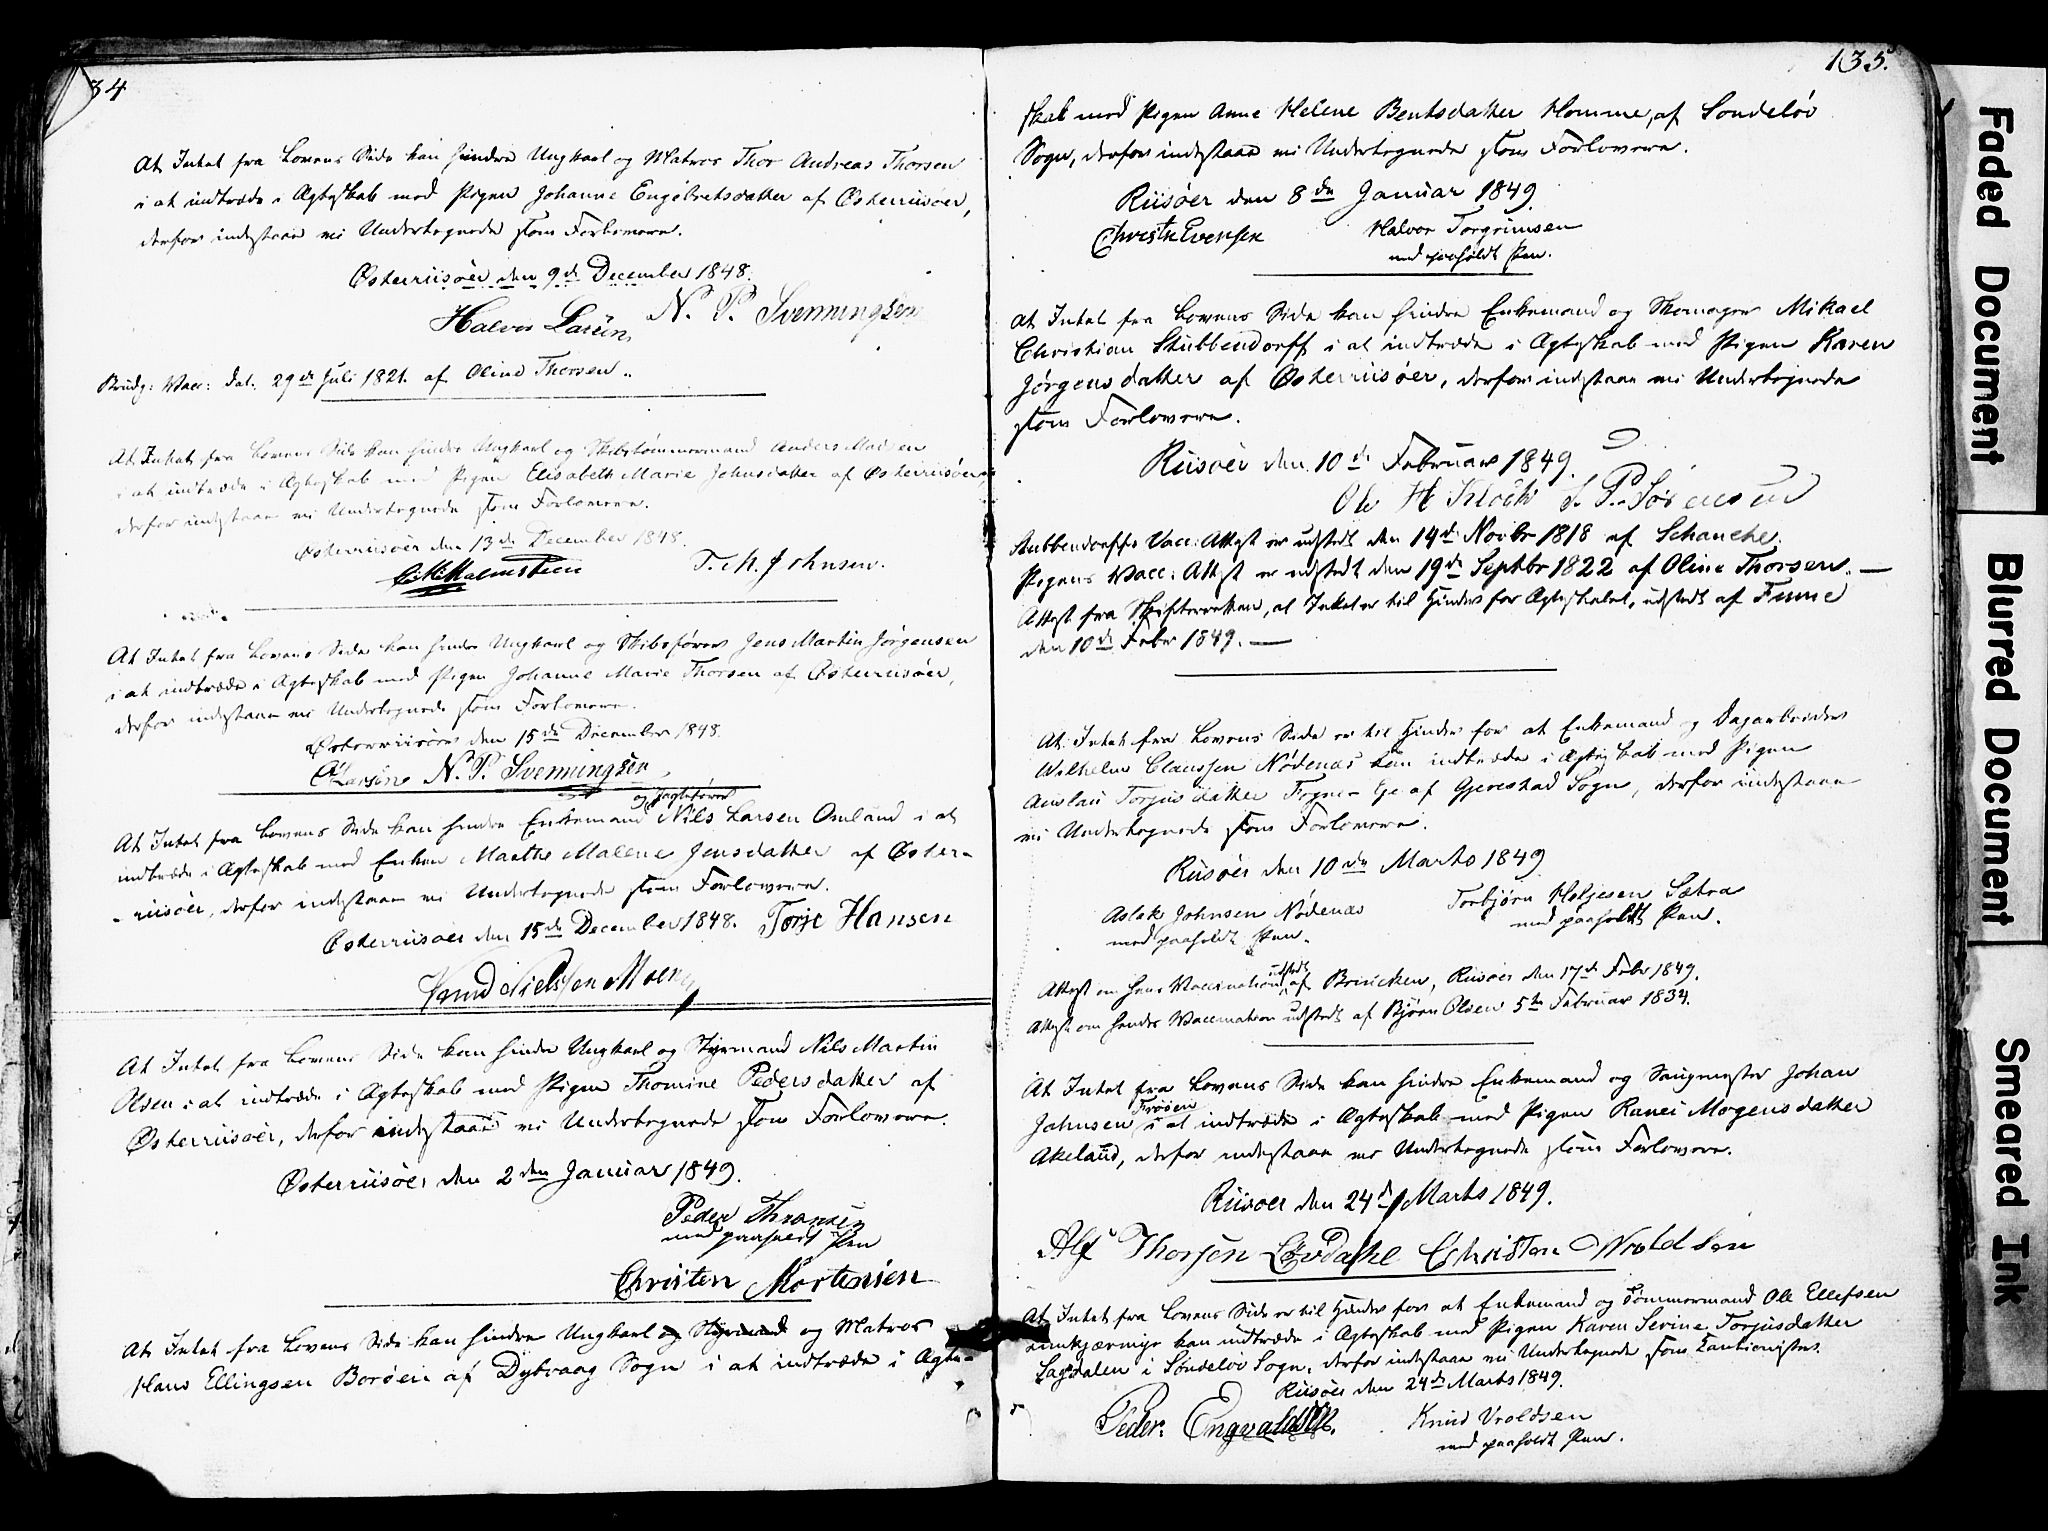 34
At Intet fra Lovens Side kan hindre Ungkarl og Matros Thor Andreas Thorsen
i at indtræde i Ægteskab med Pigen Johanne Engebretsdatter af Østerriisøer,
derfor indestaae vi Undertegnede som Forlovere.
Østerriisøer den 9de December 1848.
Halvor Larsen N. P. Svenningsen
Brudg: Vacc: dat. 29de Juli 1821. af Oline Thorsen.
At Intet fra Lovens Side kan hindre Ungkarl og Skibstømmermand Anders Madsen
i at indtræde i Ægteskab med Pigen Elisabeth Marie Johnsdatter af Østerriisøer
derfor indestaae vi Undertegnede som Forlovere.
Østerriisøer den 13de December 1848.
Malmstein T. M. Johnsen.
At Intet fra Lovens Side kan hindre Ungkarl og Skibsfører Jens Martin Jørgensen
i at indtræde i Ægteskab med Pigen Johanne Marie Thorsen af Østerriisøer,
derfor indestaae vi Undertegnede som Forlovere.
Østerriisøer den 15de December 1848.
Larsen N. P. Svenningsen
og Jagtefører
At Intet fra Lovens Side kan hindre Enkemand Nils Larsen Omlund i at
indtræde i Ægteskab med Enken Marthe Malene Jensdatter af Øster-
-riisøer, derfor indestaae vi Undertegnede som Forlovere.
Østerriisøer den 15de December 1848. Terje Hansen
Knud Nielssen Moen
At Intet fra Lovens Side kan hindre Ungkarl og Styrmand Nils Martin
Olsen i at indtræde i Ægteskab med Pigen Thomine Pedersdatter af
Østerriisøer, derfor indestaae vi Undertegnede som Forlovere.
Østerriisøer den 2den Januar 1849.
Peder Thronsen
med paaholdt Pen
Christen Mortensen
At Intet fra Lovens Side kan hindre Ungkarl og Styrmand og Matros
Hans Ellingsen Borøen af Dybvaag Sogn i at indtræde i Ægte-
135.
skab med Pigen Anne Helene Bentsdatter Homme, af Søndeløv
Sogn, derfor indestaae vi Undertegnede som Forlovere.
Riisøer den 8de Januar 1849.
Christn Evensen Halvor Torgrimsen
med paaholdt Pen.
At Intet fra Lovens Side kan hindre Enkemand og Skomager Mikael
Christian Stubbendorff i at indtræde i Ægteskab med Pigen Karen
Jørgensdatter af Østerriisøer, derfor indestaae vi Undertegnede
som Forlovere.
Riisøer den 10de Februar 1849.
Ole H Klock S. P. Sørensen
Stubbendorffs Vacc: Attest er udstedt den 14de Novbr 1818 af Schanche.
Pigens Vacc: Attest er udstedt den 19de Septbr 1822 af Oline Thorsen. —
Attest fra Skifteretten, at Intet er til Hinder for Ægteskabet, udstedt af Finne
den 10de Febr 1849. —
At Intet fra Lovens Side er til Hinder for at Enkemand og Dagarbeider
Wilhelm Claussen Nødenæs kan indtræde i Ægteskab med Pigen
Aaslau Torjusdatter Fogne-Eje af Gjerestad Sogn, derfor indestaae
vi Undertegnede som Forlovere.
Riisøer den 10de Marts 1849
Aslak Johnsen Nødenæs Torbjørn Holjesen Sætra
med paaholdt Pen. med paaholdt Pen.
Attest om hans Vaccination udstedt af Brincken, Riisøer den 17de Febr 1849.
Attest om hendes Vaccination udstedt af Bjørn Olsen 5te Februar 1834.
At Intet fra Lovens Side kan hindre Enkemand og Saugmester Johan
Frøsen
Johnsen i at indtræde i Ægteskab med Pigen Ranei Mogensdatter
Akeland, derfor indestaae vi Undertegnede som Forlovere.
Riisøer den 24de Marts 1849.
Alf Thorsen Løvdahl Christen Wroldsen
At Intet fra Lovens Side er til Hinder for at Enkemand og Tømmermand Ole Ellefsen
kan indtræde i Ægteskab med Pigen Karen Serine Torjusdatter
Lagdalen i Søndeløv Sogn, derfor indestaae vi Undertegnede som Cautionister.
Riisøer den 24de Marts 1849.
Peder Engvaldsen. Knud Vroldsen
med paaholdt Pen.
Faded Document
Blurred Document
Smeared Ink